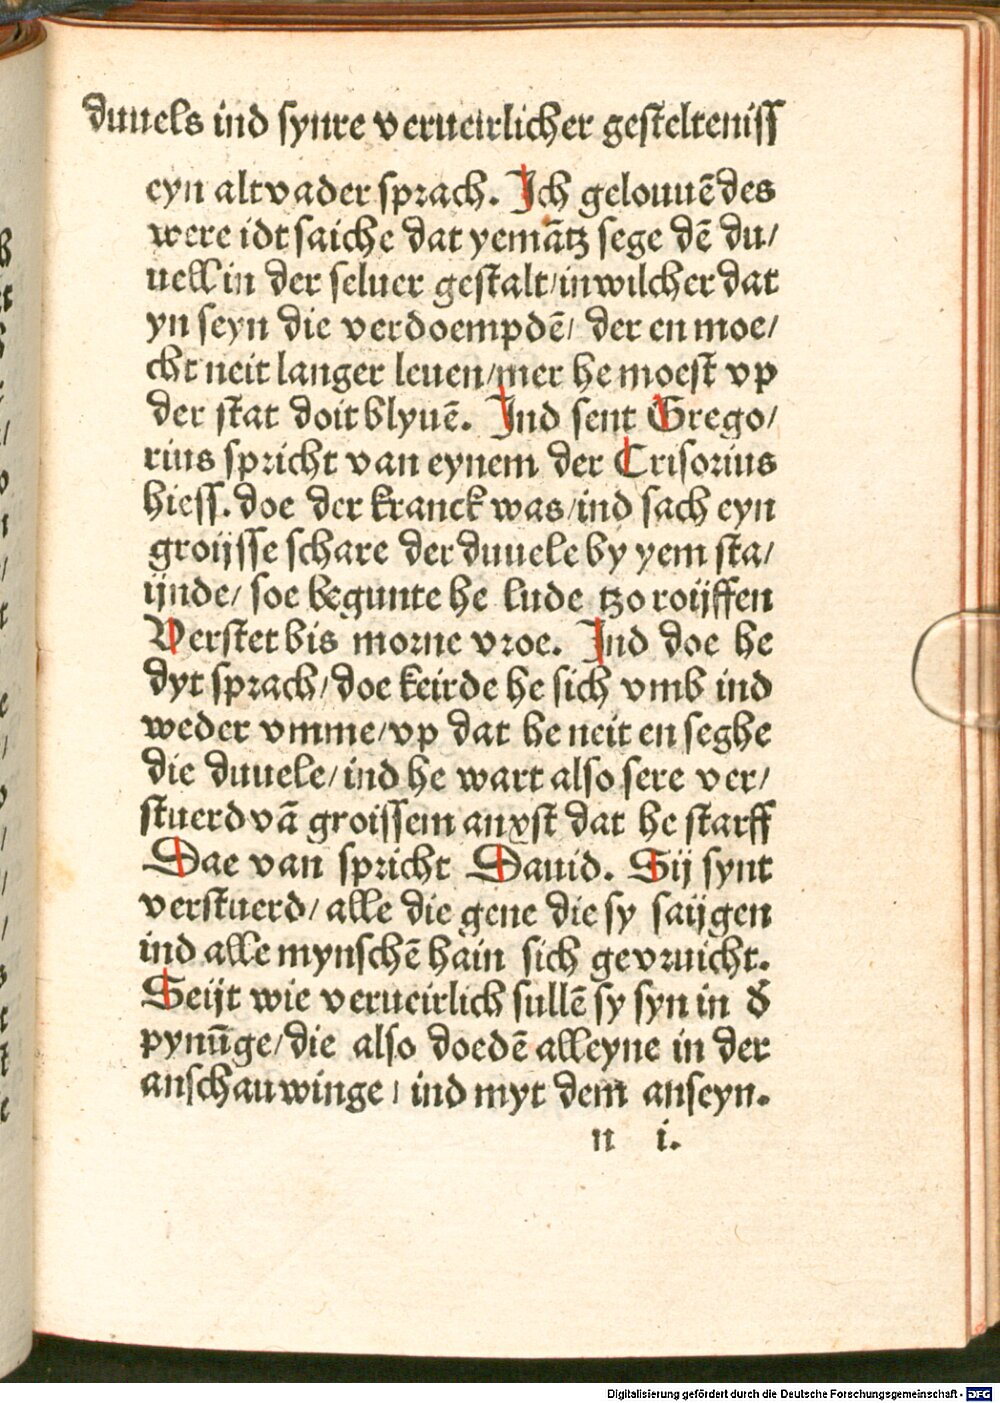 duuels ind synre verueirlicher gestelteniss
eyn altvader sprach. Ich gelouuē des
were idt saiche dat yemātz sege dē du/
uell in der seluer gestalt/in wilcher dat
yn seyn die verdoempdē/ der en moe/
cht neit langer leuen/mer he moest vp
der stat doit blyuē. Ind sent Grego/
rius spricht van eynem der Crisorius
hiess. doe der kranck was/ind sach eyn
groijsse schare der duuele by yem sta/
ijnde/ soe begunte he lude tzo roijffen
Verstet bis morne vroe. Ind doe he
dyt sprach/doe keirde he sich vmb ind
weder vmme/vp dat he neit en seghe
die duuele/ind he wart also sere ver/
stuerd vā groissem anxst dat he starff
Dae van spricht Dauid. Sij synt
verstuerd/ alle die gene die sy saijgen
ind alle mynschē hain sich gevruicht.
Seijt wie verueirlich sullē sy syn in đ
pynūge/die also doedē alleyne in der
anschauwinge/ ind myt dem anseyn.
n i.
Digitalisierung gefördert durch die Deutsche Forschungsgemeinschaft - DFG